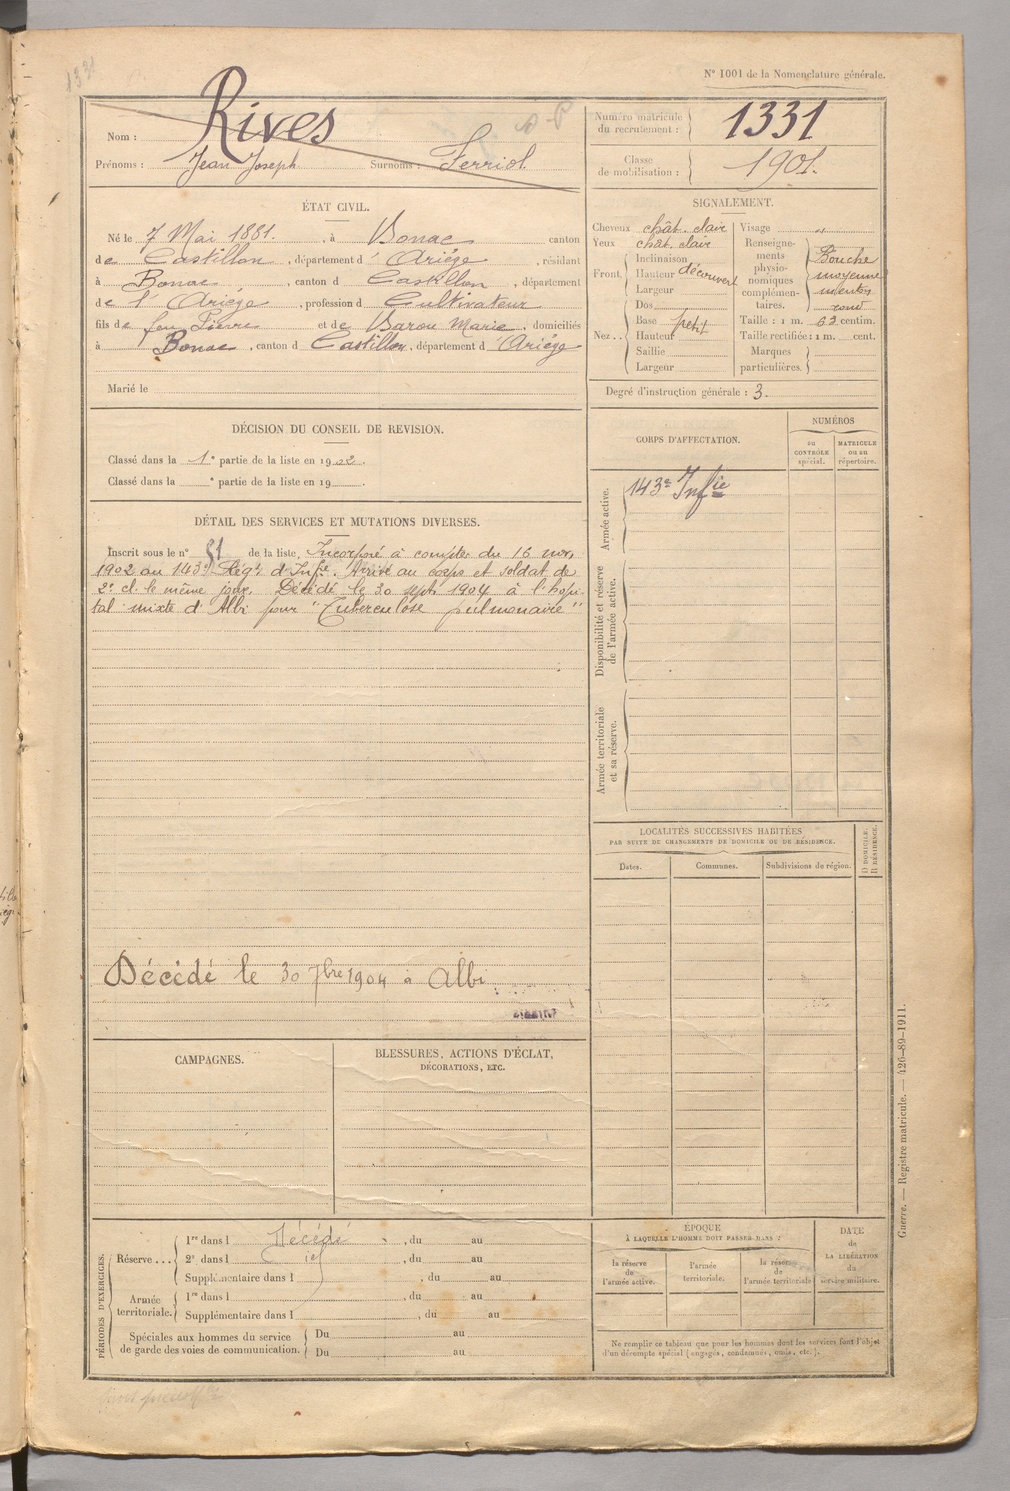 1331
N° 1001 de la Nomenclature générale.
Nom : Rives
Prénoms : Jean Joseph Surnoms : Ferriol
Numéro matricule du recrutement : 1331
Classe de mobilisation : 1901.
ÉTAT CIVIL.
Né le 7 Mai 1881. , à Bonac canton
de Castillon , département d' Ariège , résidant
à Bonac , canton d Castillon , département
de l' Ariège , profession d Cultivateur
fils de feu Pierre et de Barou Marie , domiciliés
à Bonac , canton d Castillon , département d' Ariége
Marié le
SIGNALEMENT.
Cheveux chât. clair
Yeux chât. clair
Front. Inclinaison
Hauteur découvert
Largeur
Nez.. Dos
Base petit
Hauteur
Saillie
Largeur
Visage "
Renseignements physionomiques complémentaires. Bouche moyenne menton rond
Taille : 1 m. 62 centim.
Taille rectifiée : 1 m. cent.
Marques particulières.
Degré d'instruction générale : 3.
DÉCISION DU CONSEIL DE REVISION.
Classé dans la 1e partie de la liste en 1902.
Classé dans la e partie de la liste en 19
DÉTAIL DES SERVICES ET MUTATIONS DIVERSES.
Inscrit sous le n° 51 de la liste, Incorporé à compter du 16 nov.
1902 au 143e Régt d'Infie. Arrivé au corps et soldat de
2e cl. le même jour. Décédé le 30 sept. 1904 à l'hopi-
tal mixte d'Albi pour "Tuberculose pulmonaire"
Décédé le 30 7bre 1904 à Albi
CORPS D'AFFECTATION.
NUMÉROS
au CONTRÔLE spécial.
MATRICULE ou au répertoire.
Armée active.
143e Infie
Disponibilité et réserve de l'armée active.
Armée territoriale et sa réserve.
LOCALITÉS SUCCESSIVES HABITÉES
PAR SUITE DE CHANGEMENTS DE DOMICILE OU DE RÉSIDENCE.
Dates.
Communes.
Subdivisions de région.
D. DOMICILE.
R. RÉSIDENCE.
CAMPAGNES.
BLESSURES, ACTIONS D'ÉCLAT,
DÉCORATIONS, ETC.
PÉRIODES D'EXERCICES.
Réserve... 1re dans l Décédé , du au
2e dans l , du au
Supplémentaire dans l , du au
Armée territoriale. 1re dans l , du au
Supplémentaire dans l , du au
Spéciales aux hommes du service
de garde des voies de communication.
Du au
Du au
ÉPOQUE
À LAQUELLE L'HOMME DOIT PASSER DANS :
la réserve de l'armée active.
l'armée territoriale.
la réserve de l'armée territoriale
DATE de LA LIBÉRATION du service militaire.
Ne remplir ce tableau que pour les hommes dont les services font l'objet
d'un décompte spécial (engagés, condamnés, omis, etc.).
Guerre. — Registre matricule. — 426-89-1911.